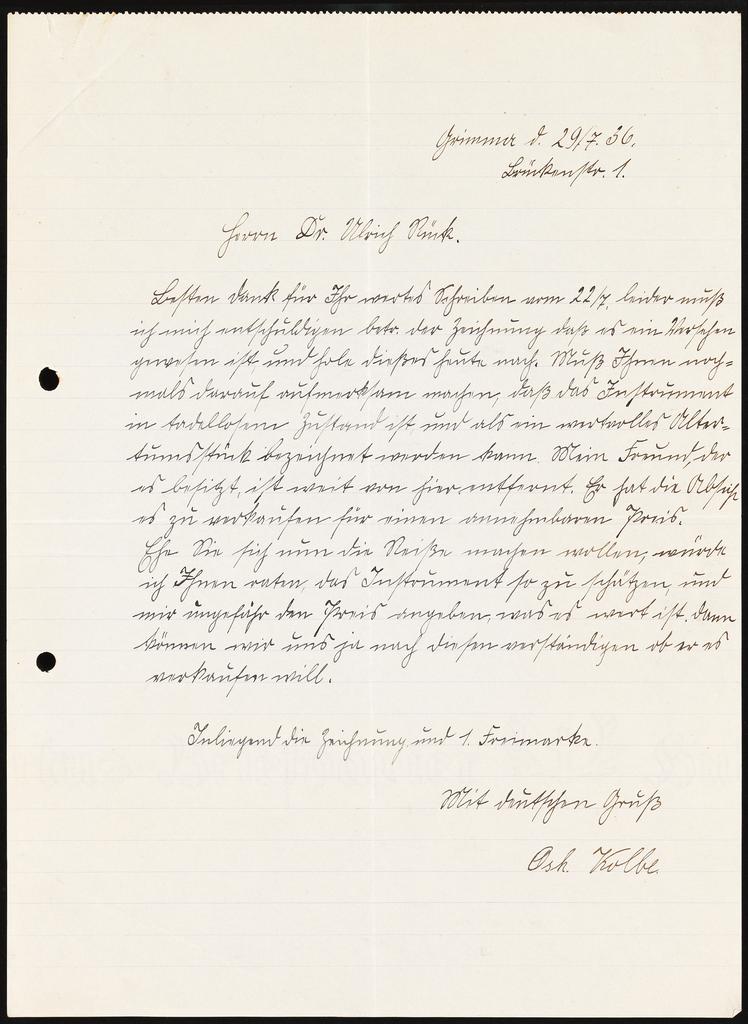 Grimma d. 29/7. 36.
Brückenstr. 1.
Herrn Dr. Ulrich Rück.
Besten dank für Ihr wertes Schreiben vom 22/7, leider muß
ich mich entschuldigen betr. der Zeichnung daß es ein Versehen
gewesen ist, und hole dießes heute nach. Muß Ihnen noch-
mals darauf aufmerksam machen, daß das Instrument
in tadellosem Zustand ist und als ein wertvolles Alter-
tumsstück bezeichnet werden kann. Mein Freund, der
es besitzt, ist weit von hier entfernt. Er hat die Absicht
es zu verkaufen für einen annehmbaren Preis.
Ehe Sie sich nun die Reiße machen wollen, würde
ich Ihnen raten, das Instrument so zu schätzen, und
mir ungefähr den Preis angeben, was es wert ist, dann
können wir uns ja nach diesen verständigen ob er es
verkaufen will.
Inliegend die Zeichnung und 1. Freimarke.
Mit deutschen Gruß
Osk. Kolbe.